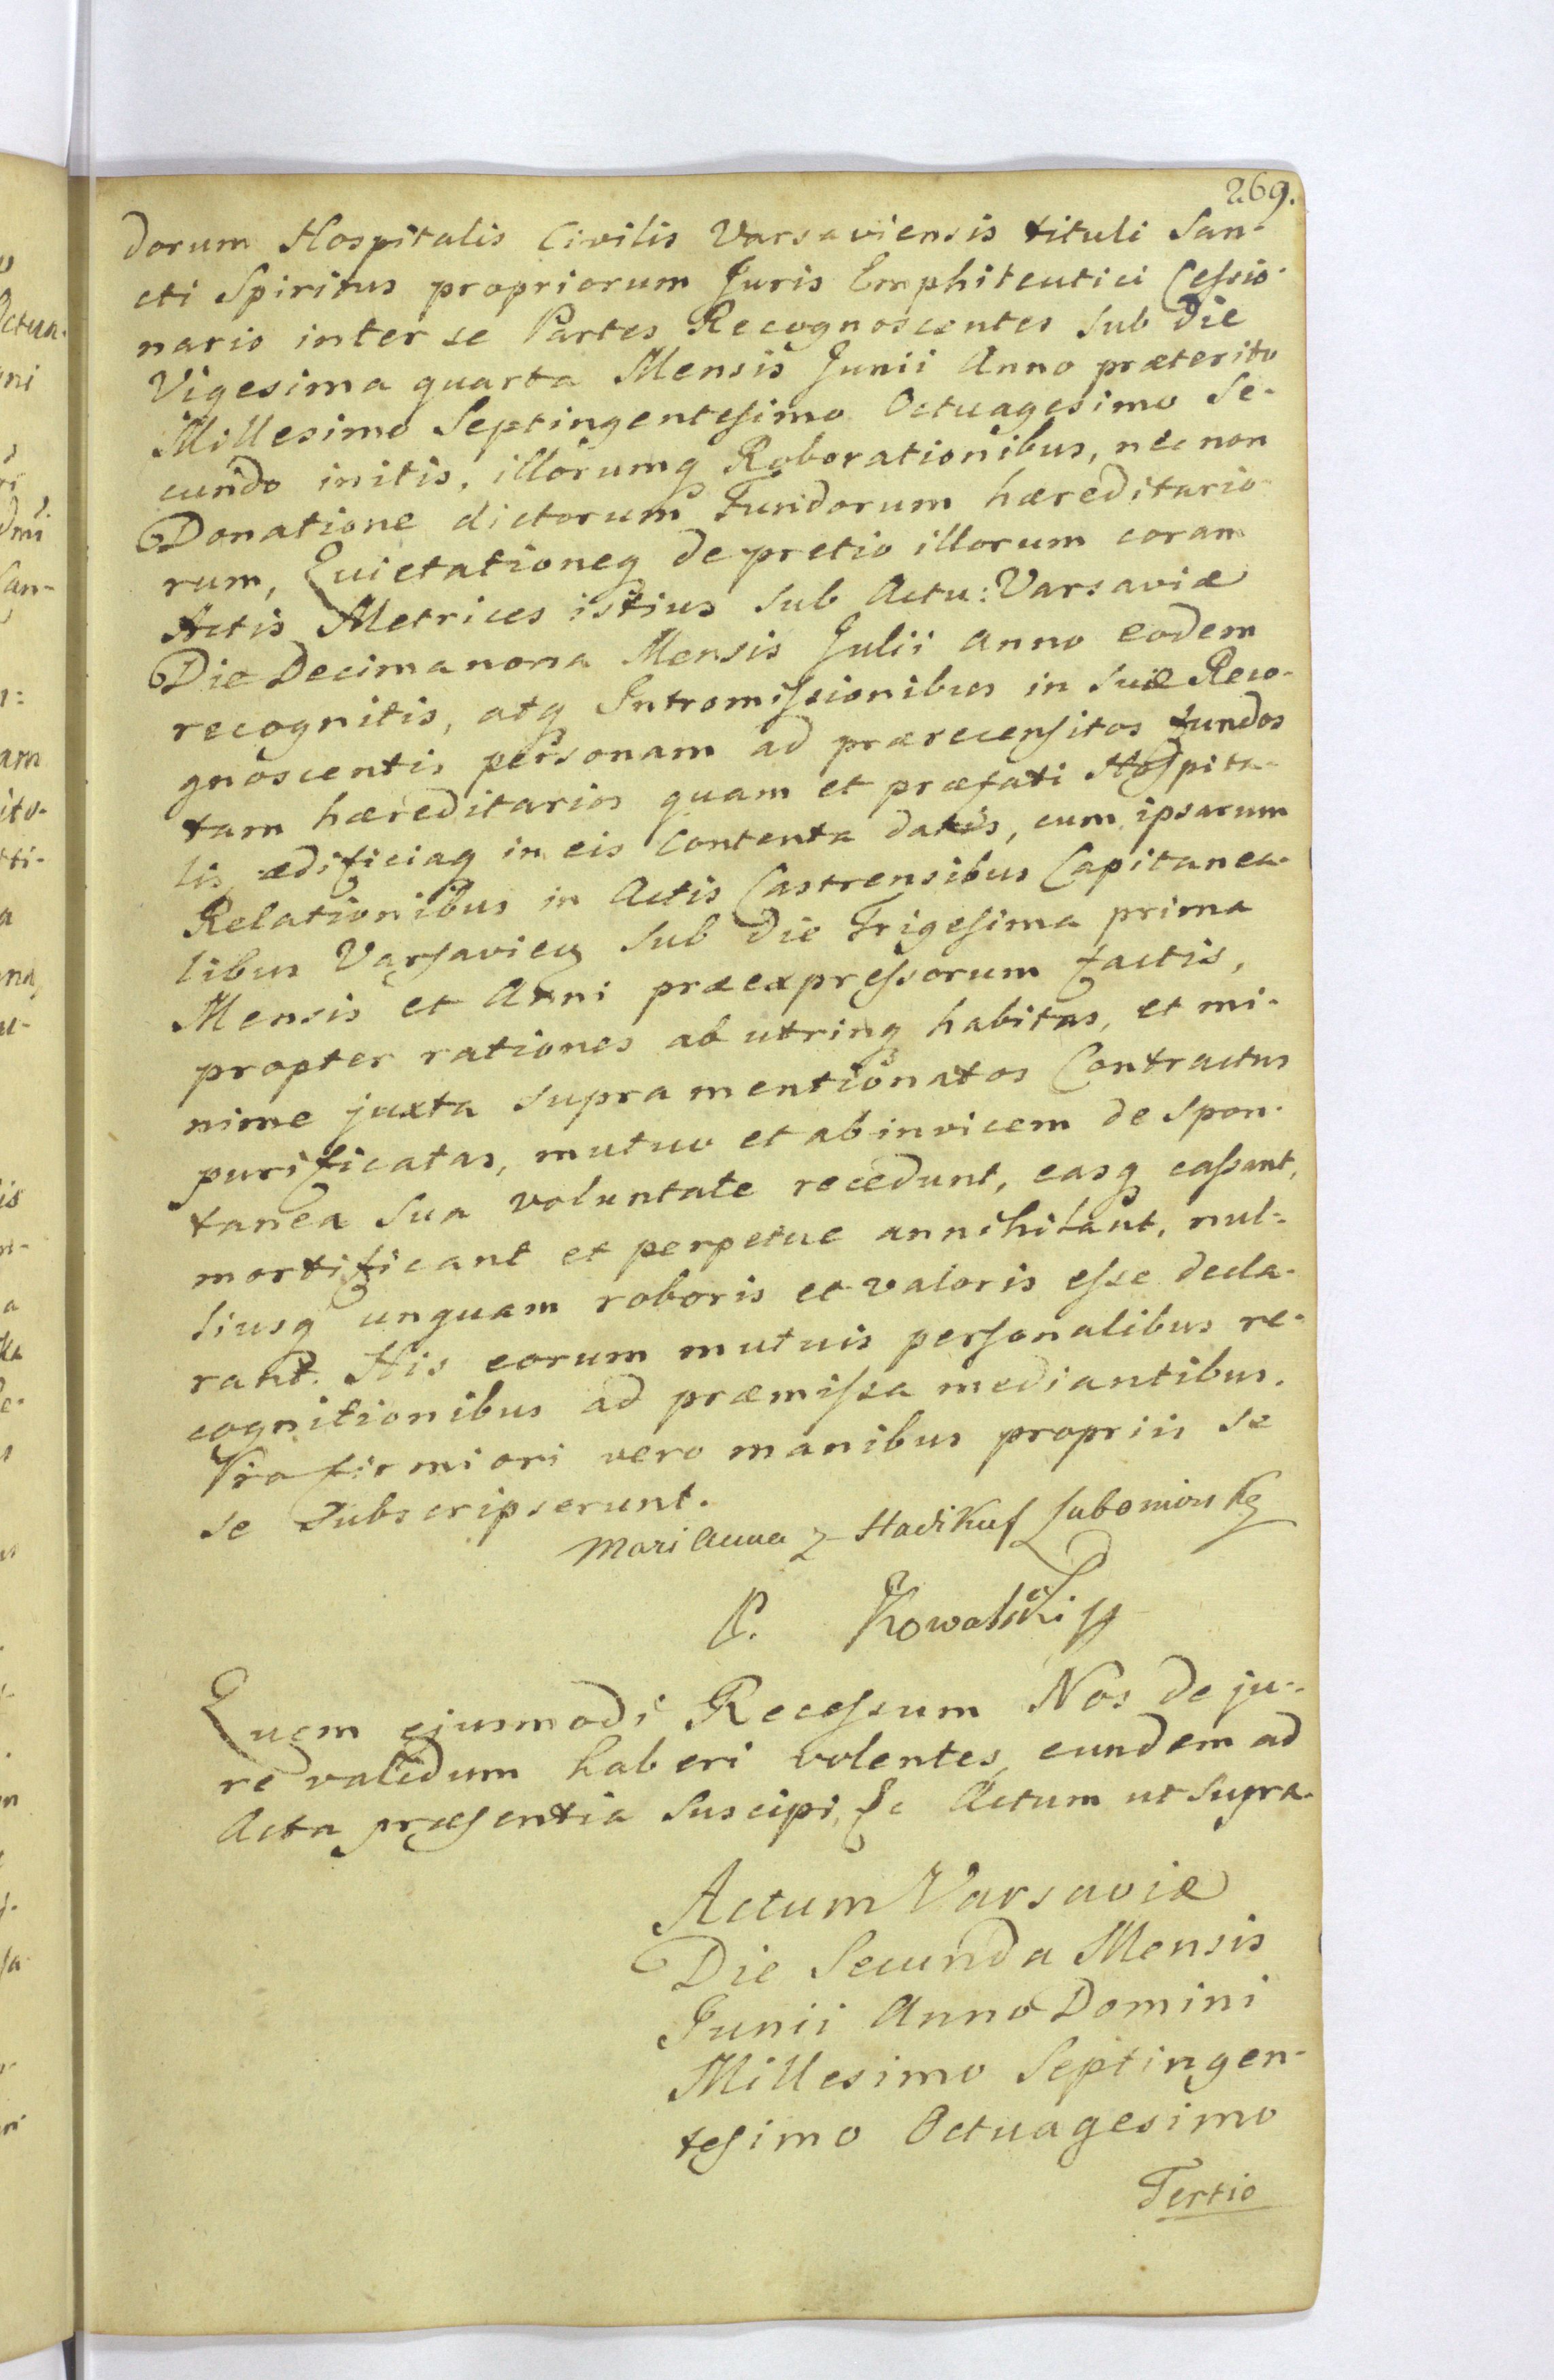 269.
dorum Hospitalis Civilis Varsaviensis tituli San-
cti Spiritus propriorum Juris Emphiteutici Cessio-
nario inter se Partes Recognoscentes sub Die
Vigesima quarta Mensis Junii Anno præterito
Millesimo Septingentesimo Octuagesimo Se-
cundo initis, illorumq Roborationibus, nec non
Donatione dictorum Fundorum hæreditario-
rum, Quietationeq de pretio illorum coram
Actis Metrices istius sub Actu: Varsaviæ
Die Decima nona Mensis Julii Anno eodem
recognitis, atq Intromissionibus in suæ Reco-
gnoscentis personam ad prærecensitos fundos
tam hæreditarios quam et præfati Hospita-
lis ædificiaq in eis Contenta datis, cum ipsarum
Relationibus in Actis Castrensibus Capitanea-
libus Varsavien sub Die Trigesima prima
Mensis et Anni præexpressorum factis,
propter rationes ab utrinq habitas, et mi-
nime juxta supra mentionatos Contractus
purificatas, mutuo et ab invicem de spon-
tanea sua voluntate recedunt, easq cassant,
mortificant et perpetue annihilant, nul-
liusq unquam roboris et valoris esse decla-
rant. His eorum mutuis personalibus re-
cognitionibus ad præmissa mediantibus.
Pro firmiori vero manibus propriis se
se subscripserunt.
Mari Anna z Hadikuf Lubomirska
P. Kowalski
Quem ejusmodi Recessum Nos de ju-
re validum haberi volentes, eundem ad
Acta præsentia suscipi, &c Actum ut supra.
Actum Varsaviæ
Die Secunda Mensis
Junii Anno Domini
Millesimo Septingen-
tesimo Octuagesimo
Tertio